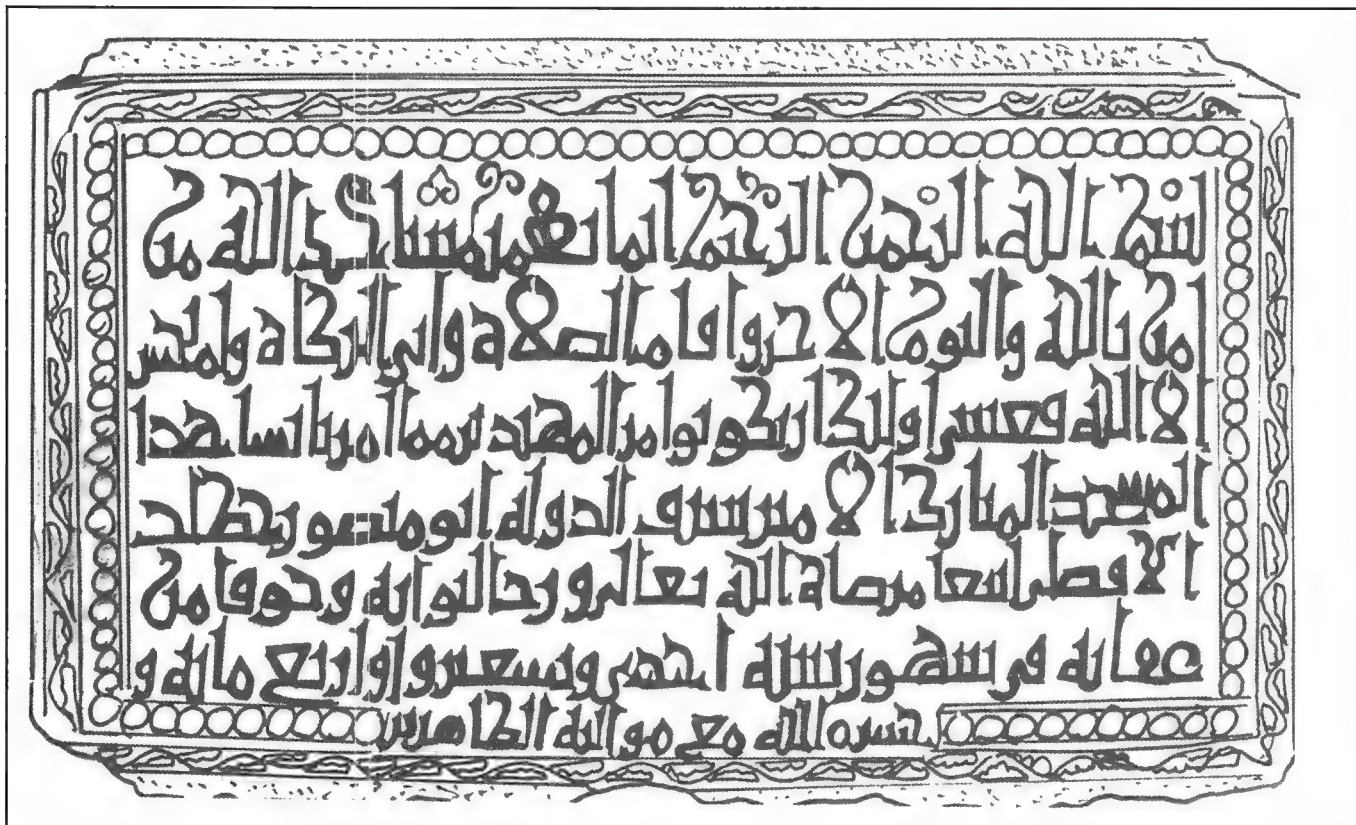 بسم الله الرحمن الرحيم انما يعمر مساجد الله من
امن بالله واليوم الاخر واقام الصلاة واتى الزكاة ولم يخش
الا الله فعسى اولئك ان يكونوا من المهتدين مما امر بانشا هذا
المسجد المبارك الامير الدولة ابو منصور
الافضلي ابتغا مرضاة الله تعالى ورجا لثوابه وخوفا من
عقابه في شهور سنة احدى وتسعين واربع مائة و
حشره الله مع مواليه الطاهرين